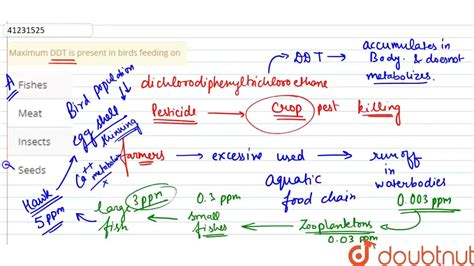 41231525
Maximum DDT is present in birds feeding on
A Fishes
Meat
Insects
Seeds
DDT → accumulates in Body. & doesnot metabolizes.
dichlorodiphenyltrichloroethane
Pesticide → Crop pest killing
Bird population ↓↓
egg shell thinning
Ca++ metabolism x
farmers → excessive used → run off in waterbodies
aquatic food chain
0.003 ppm
Zooplanktons
0.03 ppm
0.3 ppm
small fishes
3 ppm
large fish
Hawk
5 ppm
doubtnut